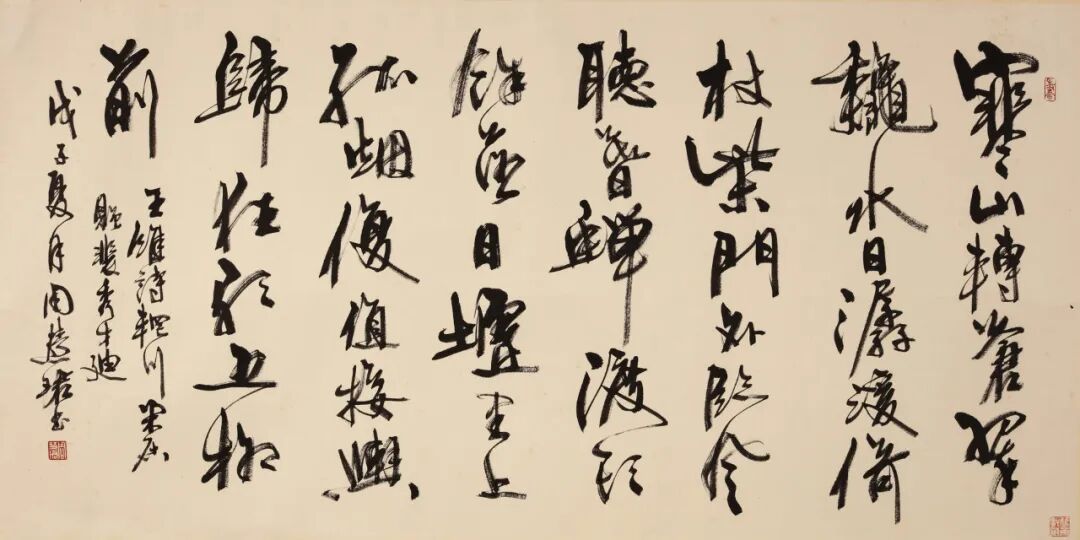 寒山轉蒼翠
龝水日潺湲倚
杖柴門外臨風
聽暮蟬渡頭
餘落日墟里上
孤烟復值接輿
歸狂歌五柳
前
王維詩輞川閑居
贈裴秀才迪
戊子夏月周慧珺書